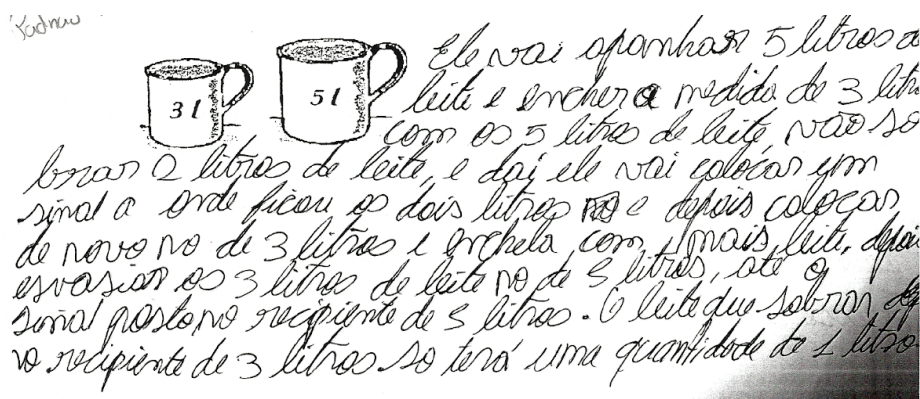 Ele vai apanhar 5 litros de
leite e encher a medida de 3 litr
3 l 5 l
com os 5 litros de leite, vão so
brar 2 litros de leite, e daí ele vai colocar um
sinal a onde ficou os dois litros e depois colocar
de novo no de 3 litros e enchela com mais leite, depois
esvasiar os 3 litros de leite no de 5 litros, até o
sinal posto no recipiente de 5 litros. O leite que sobrar
no recipiente de 3 litros só terá uma quantidade de 1 litro